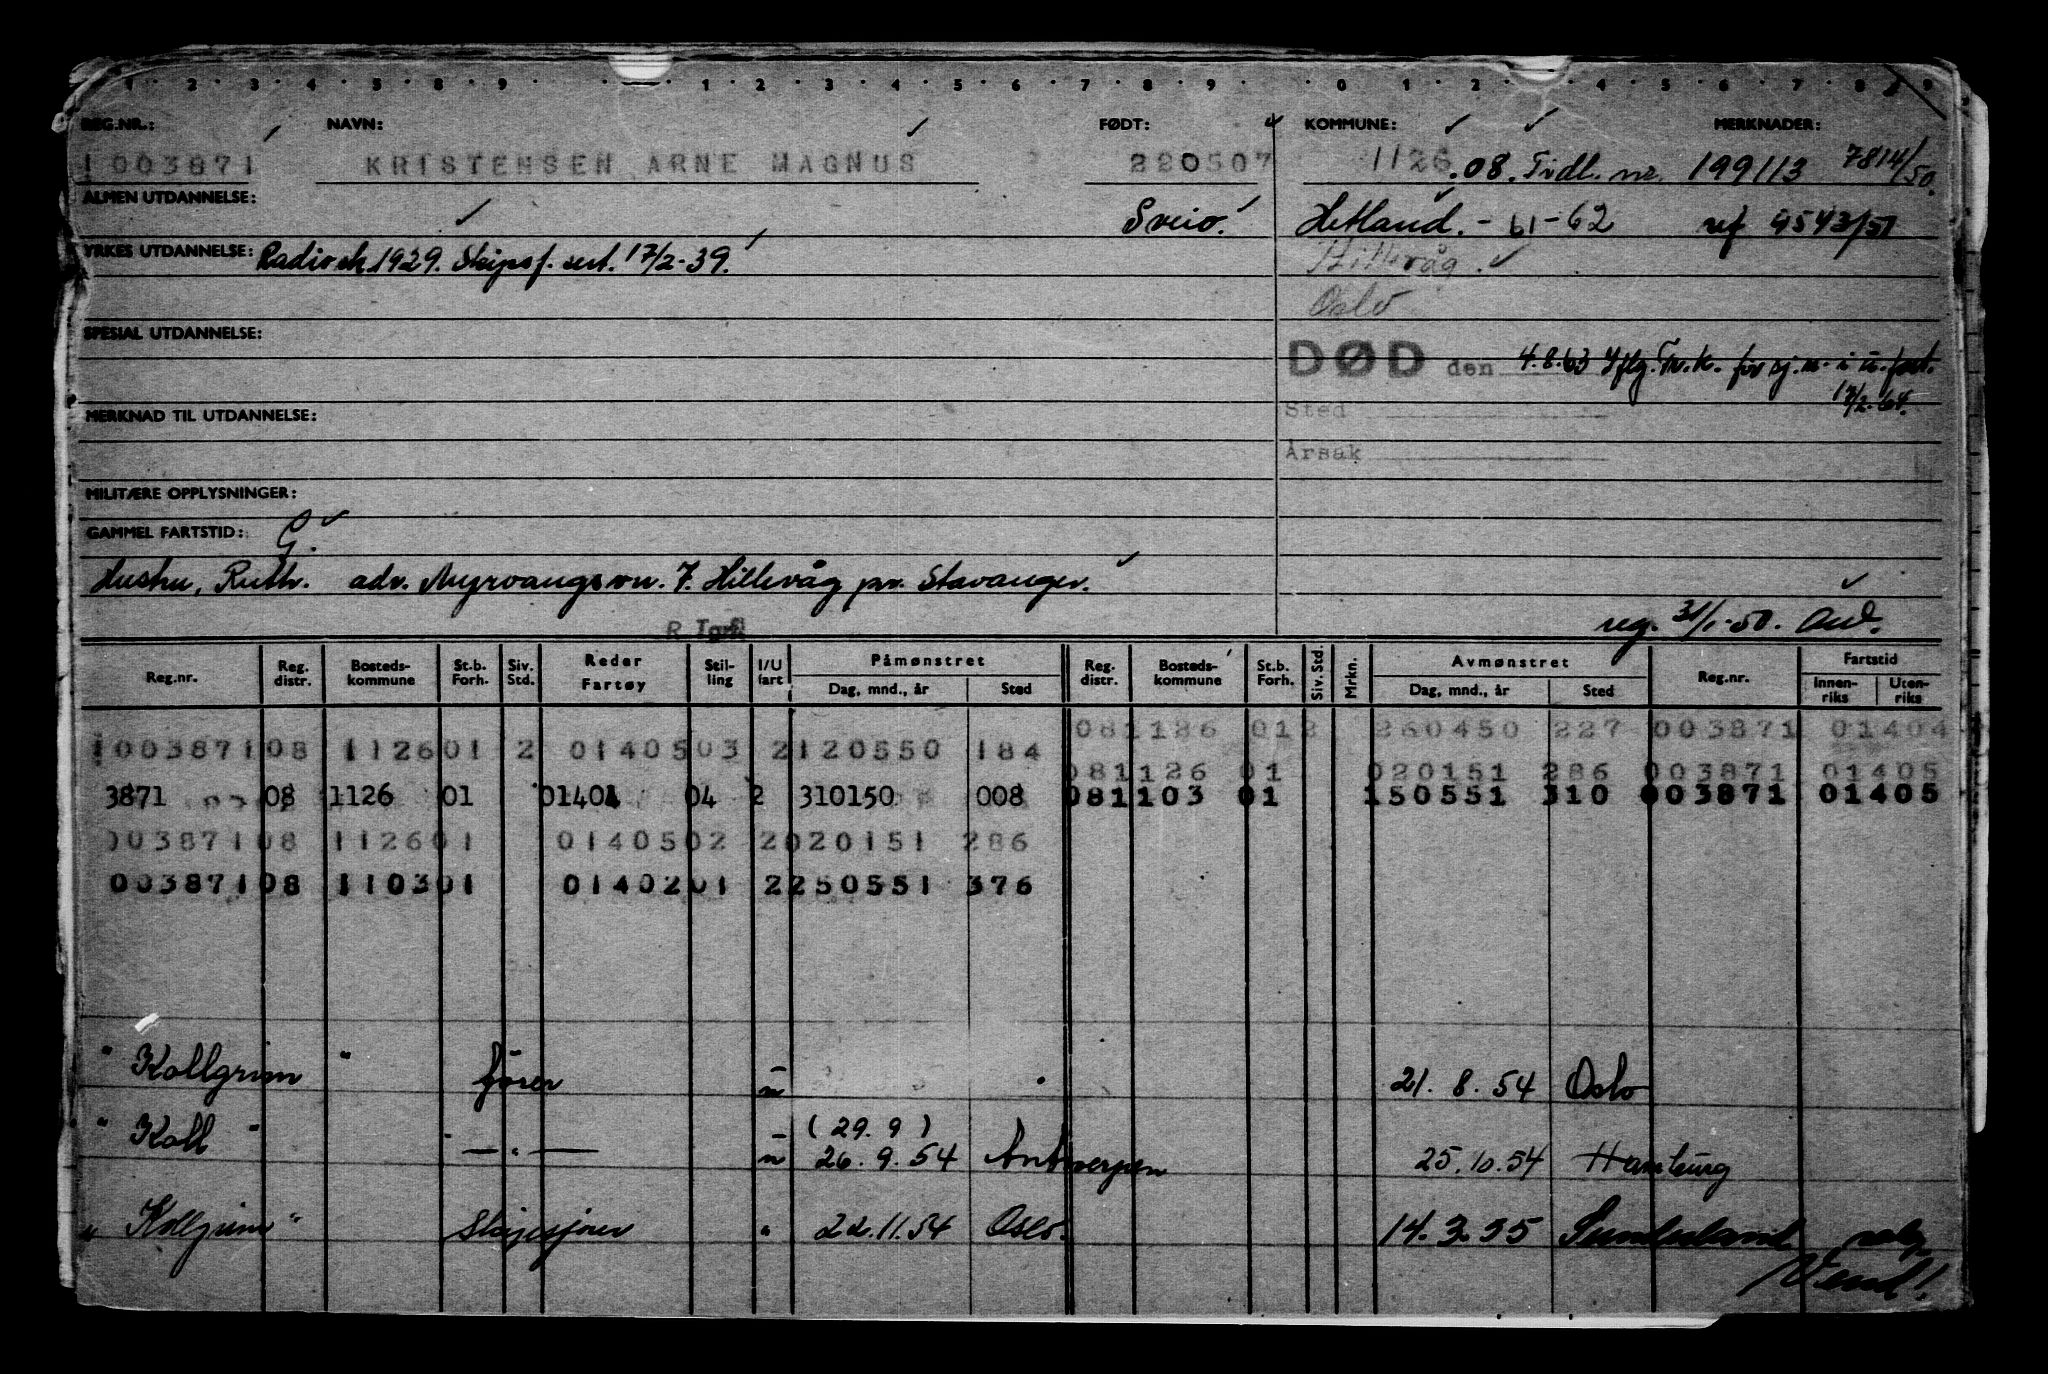 REG.NR.: NAVN: FØDT: KOMMUNE: MERKNADER:
1003871 KRISTENSEN ARNE MAGNUS 220507 1126 .08. Tidl. nr. 199113 7814/50.
ALMEN UTDANNELSE: Sveio. Hetland. - 61-62 ref 9543/51
YRKES UTDANNELSE: Radiosk. 1929. Skipsf. sert. 17/2-39. Hillevåg.
Oslo
SPESIAL UTDANNELSE:
DØD den 4.8.63 Iflg. Tr.k. for sj.m. i u.fart.
17/2-64.
MERKNAD TIL UTDANNELSE: Sted
Årsak
MILITÆRE OPPLYSNINGER:
GAMMEL FARTSTID: G.
Hustru, Ruth. adr. Myrvangsvn. 7. Hillevåg pr. Stavanger.
reg. 31/1-50.
R
Reg.nr. Reg. distr. Bosteds-kommune St.b. Forh. Siv. Std. Reder Fartøy Stil-ling I/U fart Påmønstret Dag, mnd., år Sted Reg. distr. Bosteds-kommune St.b. Forh. Siv. Std. Mrkn. Avmønstret Dag, mnd., år Sted Reg.nr. Fartstid Innen-riks Uten-riks
081126 012 260450 227 003871 01404
100387108 112601 2 0140503 2120550 184
081126 01 020151 286 003871 01405
3871 08 1126 01 01404 04 2 310150 008 081103 01 150551 310 003871 01405
00387108 112601 0140502 2020151 286
00387108 110301 0140201 2250551 376
" Kollgrim " fører u 21. 8. 54 Oslo
(29. 9)
" Koll " — " — u 26. 9. 54 Antwerpen 25.10.54 Hamburg
" Kollgrim " Skipsfører " 22.11.54 Oslo. 14.3.55 Sunderland
Vend!